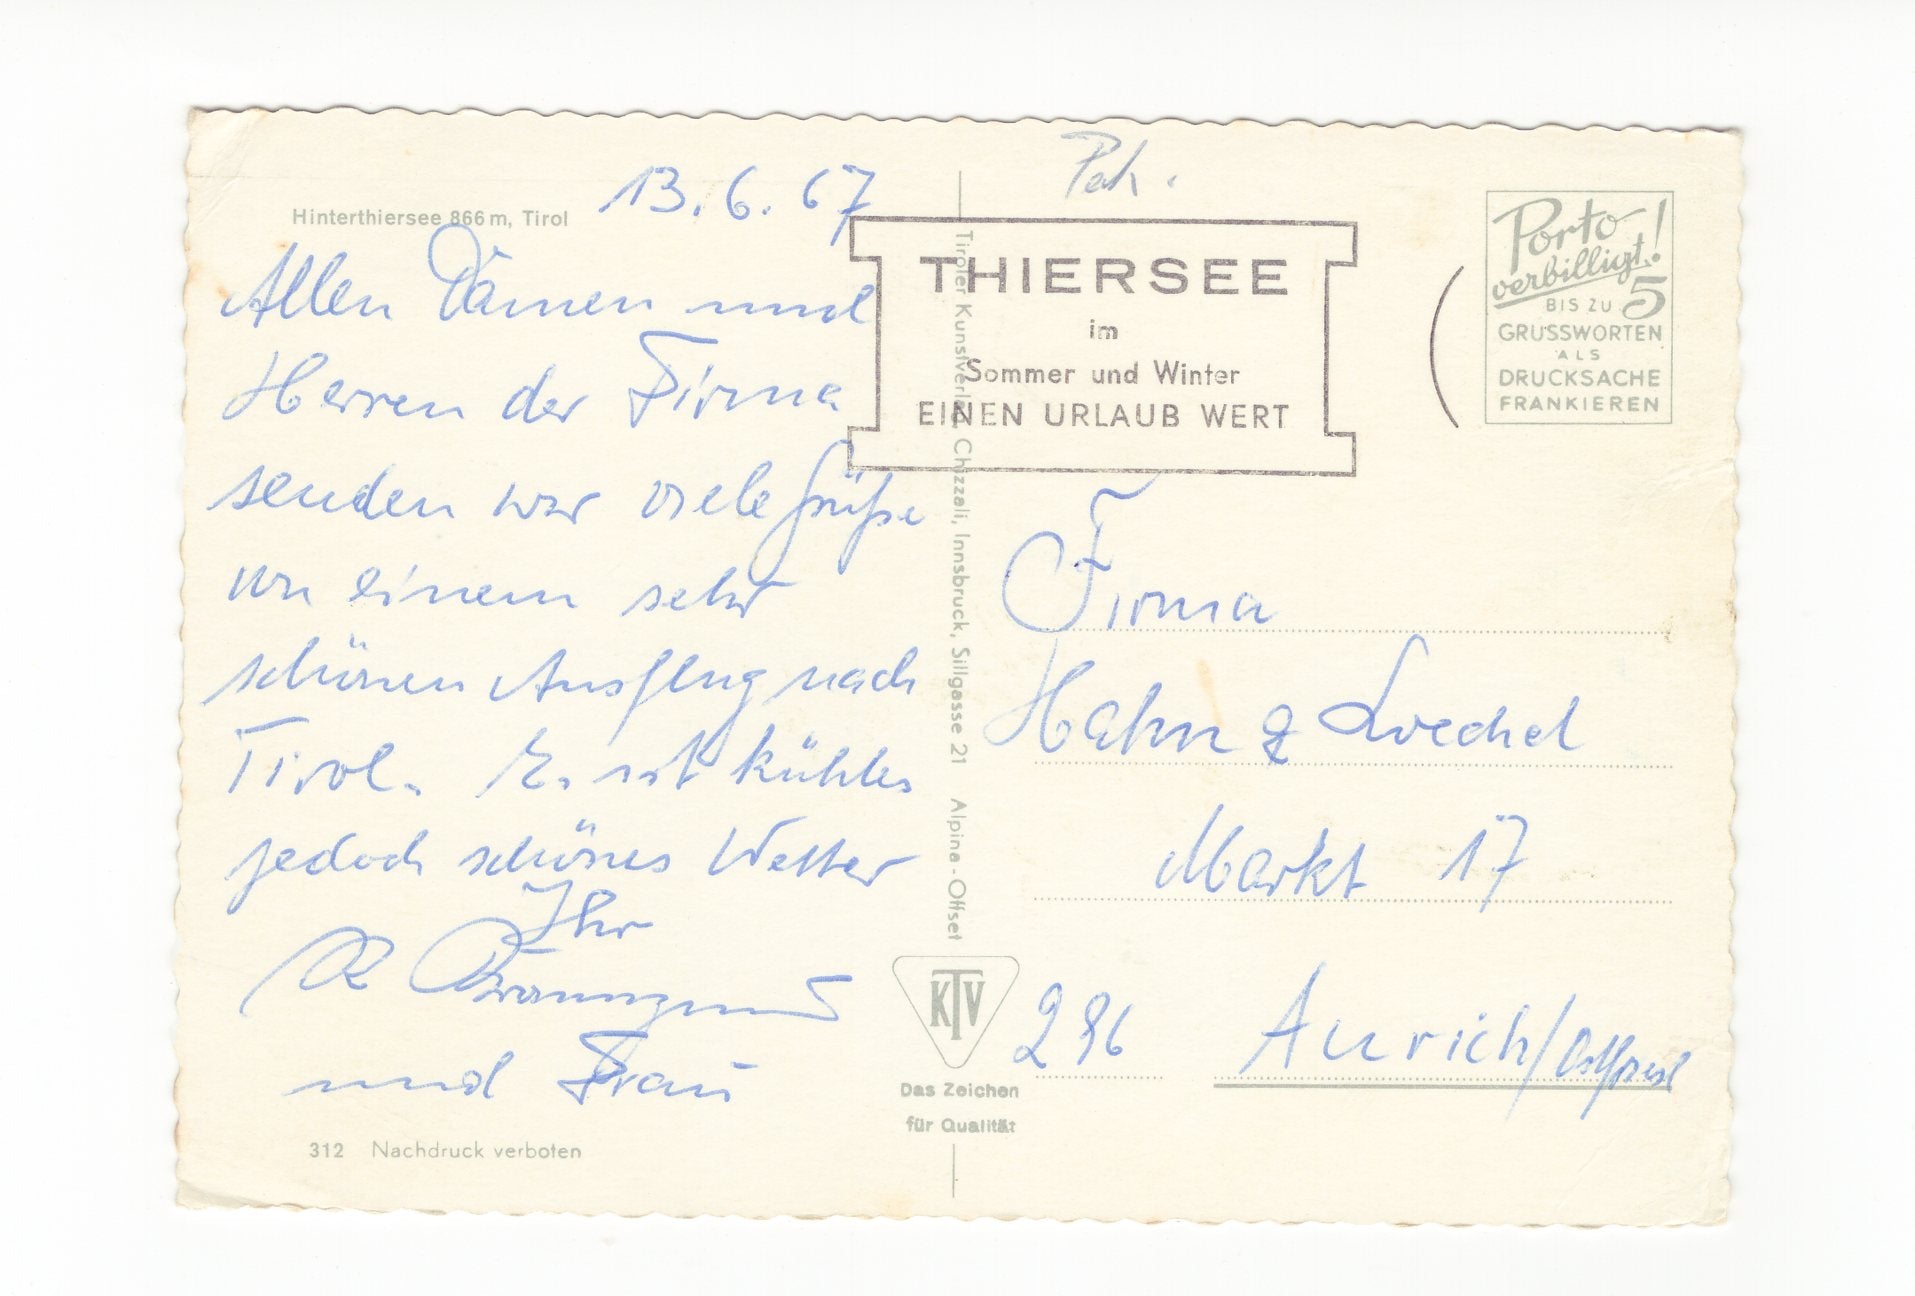 Hinterthiersee 866 m, Tirol
13.6.67
Allen Damen und
Herren der Firma
senden wir viele Grüße
von einem sehr
schönen Ausflug nach
Tirol. Es ist kühles
jedoch schönes Wetter
Ihr
und Frau
312 Nachdruck verboten
Tiroler Kunstverlag Chizzali, Innsbruck, Sillgasse 21 Alpina-Offset
KTV
Das Zeichen
für Qualität
THIERSEE
im
Sommer und Winter
EINEN URLAUB WERT
Porto
verbilligt!
BIS ZU 5
GRUSSWORTEN
ALS
DRUCKSACHE
FRANKIEREN
Firma
Hahn &
Markt 17
296 Aurich/Ostfriesl